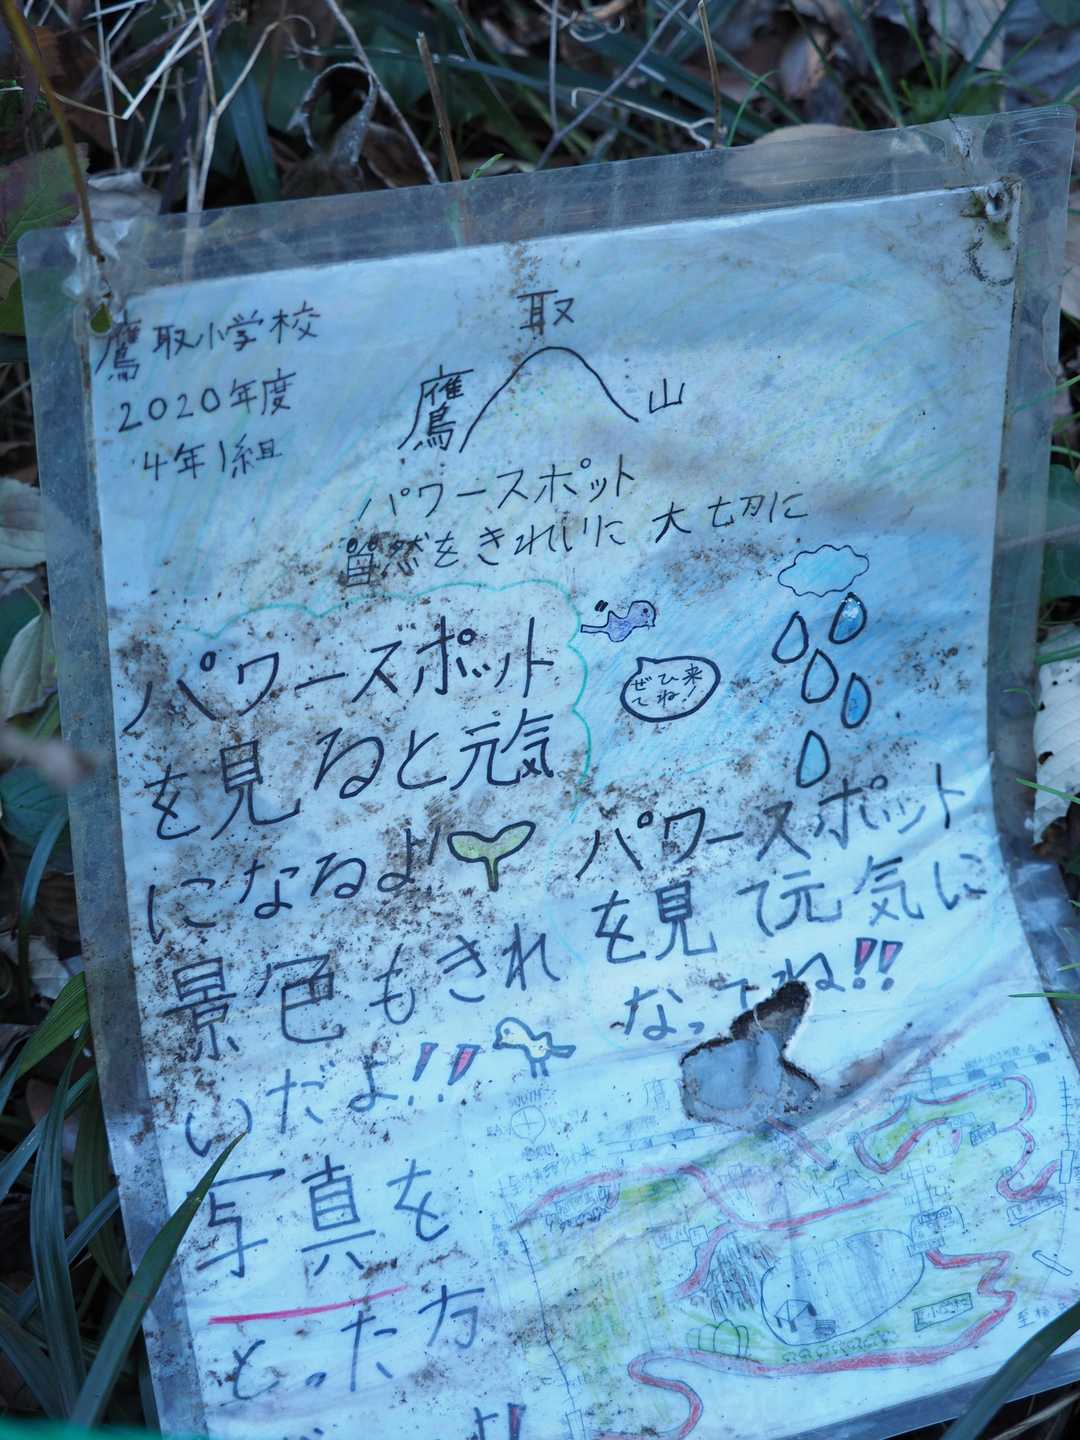 鷹取小学校
2020年度
4年1組
鷹取山
パワースポット
自然をきれいに大切に
パワースポット
を見ると元気
になるよ!!
景色もきれ
いだよ!!
写真を
とった方
ぜひ来
てね!
パワースポット
を見て元気に
なってね!!